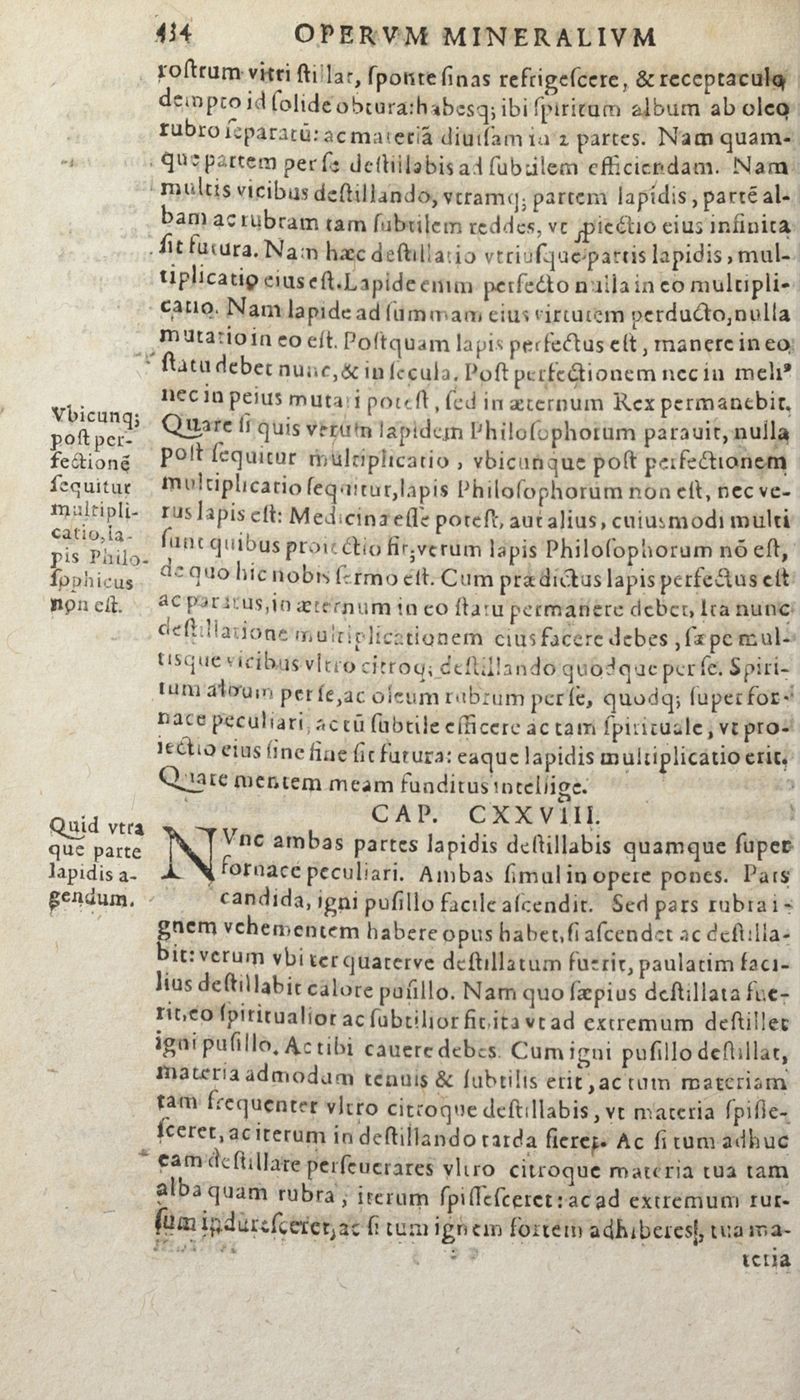 434 OPERVM MINERALIVM
roſtrum vitri ſtillar, ſponte ſinas refrigeſcere, & receptaculo
dempto id ſolide obtura: habesq; ibi ſpiritum album ab oleo
rubro ſeparatū: ac materiā diuiſam in 2 partes. Nam quam-
que partem per ſe deſtillabis ad ſubtilem efficiendam. Nam
multis vicibus deſtillando, vtramq; partem lapidis, partē al-
bam ac rubram tam ſubtilem reddes, vt ꝓiectio eius infinita
ſit futura. Nam hæc deſtillatio vtriuſque partis lapidis, mul-
tiplicatio eius eſt. Lapide enim perfecto nulla in eo multipli-
catio. Nam lapide ad ſummam eius virtutem perducto, nulla
mutatio in eo eſt. Poſtquam lapis perfectus eſt, manere in eo
ſtatu debet nunc, & in ſecula. Poſt perfectionem nec in meliꝰ
nec in peius mutari poteſt, ſed in æternum Rex permanebit.
Quare ſi quis verum lapidem Philoſophorum parauit, nulla
poſt ſequitur multiplicatio, vbicunque poſt perfectionem
multiplicatio ſequitur, lapis Philoſophorum non eſt, nec ve-
rus lapis eſt: Medicina eſſe poteſt, aut alius, cuiuſmodi multi
ſunt quibus proiectio fit; verum lapis Philoſophorum nō eſt,
de quo hic nobis ſermo eſt. Cum prædictus lapis perfectus eſt
ac paratus, in æternum in eo ſtatu permanere debet, Ita nunc
deſtillatione multiplicationem eius facere debes, ſæpe mul-
tisque vicibus vltro citroq; deſtillando quodque per ſe. Spiri-
tum album per ſe, ac oleum rubrum per ſe, quodq; ſuper for-
nace peculiari, ac tū ſubtile efficere ac tam ſpirituale, vt pro-
iectio eius ſine fine ſit futura: eaque lapidis multiplicatio erit.
Quare mentem meam funditus intellige.
Vbicunq;
poſt per-
fectionē
ſequitur
multipli-
catio, la-
pis Philo-
ſophicus
non eſt.
CAP. CXXVIII.
NVnc ambas partes lapidis deſtillabis quamque ſuper
fornace peculiari. Ambas ſimul in opere pones. Pars
candida, igni puſillo facile aſcendit. Sed pars rubra i-
gnem vehementem habere opus habet, ſi aſcendet ac deſtilla-
bit: verum vbi ter quaterve deſtillatum fuerit, paulatim faci-
lius deſtillabit calore puſillo. Nam quo ſæpius deſtillata fue-
rit, eo ſpiritualior ac ſubtilior fit, ita vt ad extremum deſtillet
igni puſillo. Ac tibi cauere debes. Cum igni puſillo deſtillat,
materia admodum tenuis & ſubtilis erit, ac tum materiam
tam frequenter vltro citroque deſtillabis, vt materia ſpiſſe-
ſceret, ac iterum in deſtillando tarda fieret. Ac ſi tum adhuc
eam deſtillare perſeuerares vltro citroque materia tua tam
alba quam rubra, iterum ſpiſſeſceret: ac ad extremum rur-
ſum indureſceret, ac ſi tum ignem fortem adhiberes, tua ma-
teria
Quid vtra
que parte
lapidis a-
gendum.